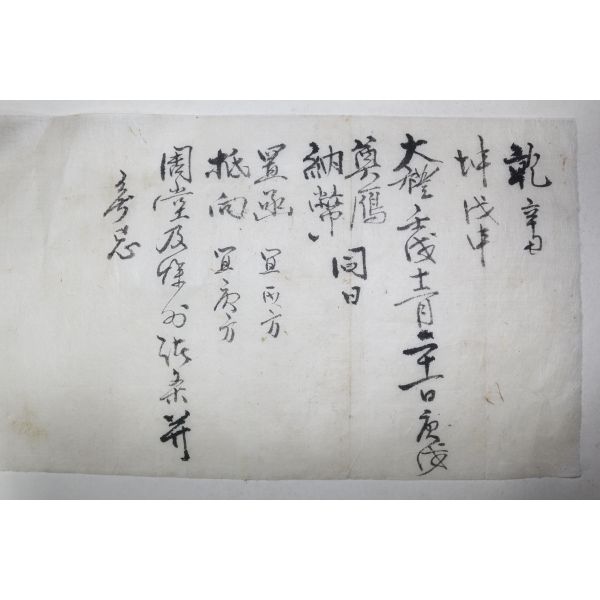 乾 辛丑
坤 戊申
大禮 壬戌十二月二十一日庚戌
奠鴈
納幣 同日
置函 宜丙方
抵向 宜庚方
周堂及 外諸 并
無忌